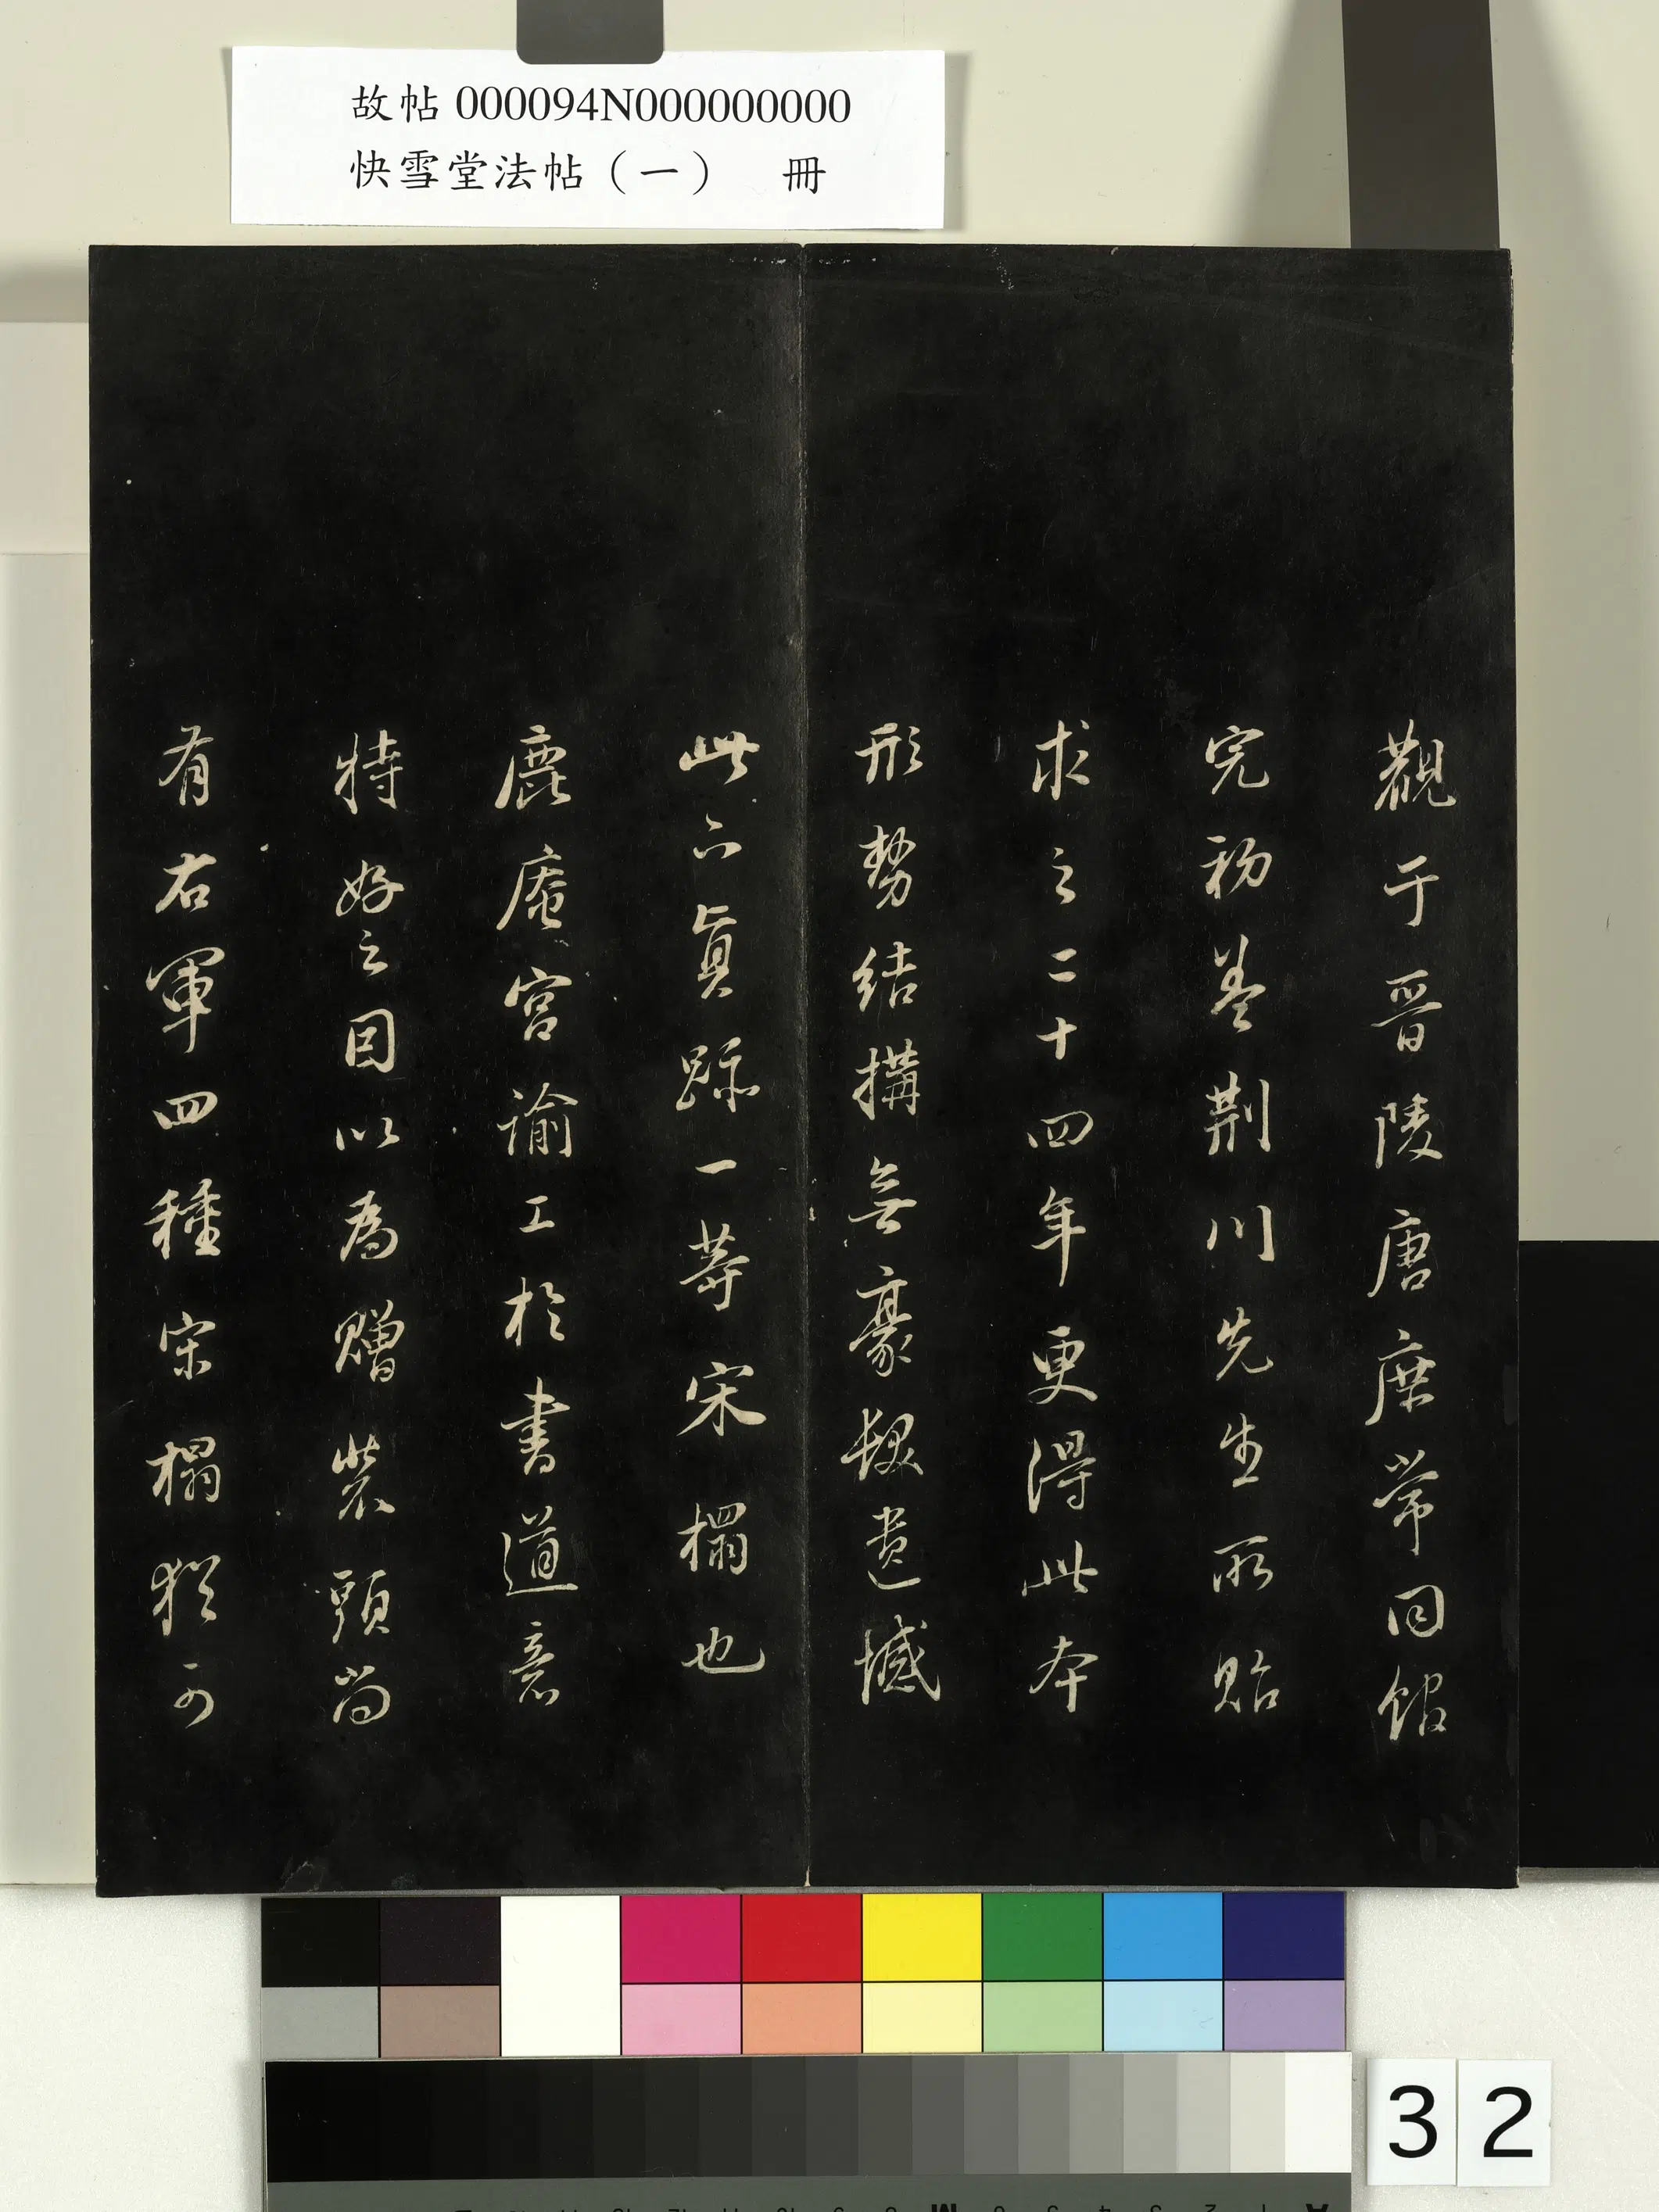 故帖 000094N000000000
快雪堂法帖（一） 冊
觀于晉陵唐庶常同館
完初蓋荊川先生所貽
求之二十四年更得此本
形勢結搆無豪髮遺憾
此下真跡一等宋榻也
鹿庵宮諭工於書道意
特好之因以為贈裝頭尚
有右軍四種宋榻猶可
32